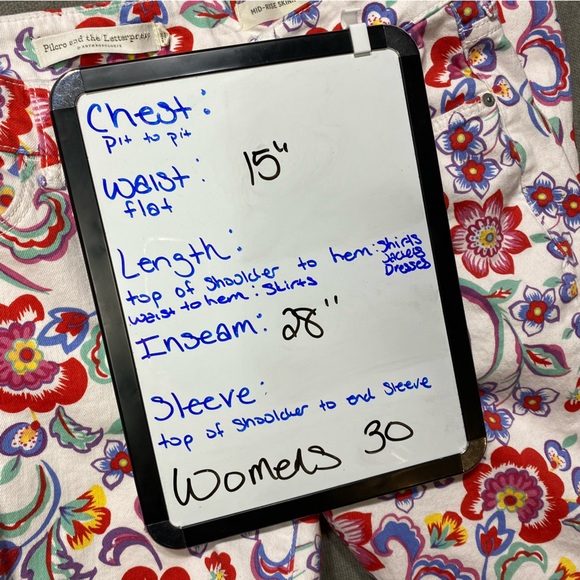 Pilcro and the Letterpress
ANTHROPOLOGIE
MID-RISE SKINNY
Chest:
pit to pit
Waist: 15"
flat
Length:
top of shoulder to hem: Shirts
Jackets
Dresses
waist to hem: Skirts
Inseam: 28"
Sleeve:
top of shoulder to end sleeve
Womens 30